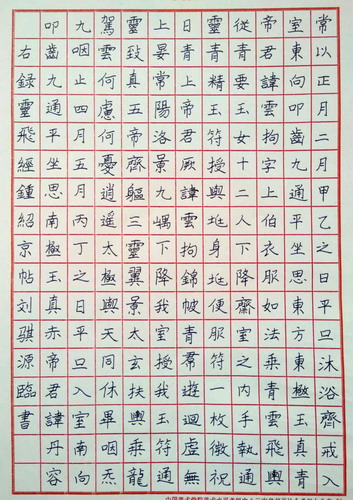 常以正月二月甲乙之日平旦沐浴齊戒入
室東向叩齒九通平坐思東方東極玉真青
帝君諱雲拘字上伯衣服如法乘青雲飛輿
從青要玉女十二人下降齋室之内手執通
靈青精玉符授與地身地便服符一枚微祝
日青上常君厥諱雲拘錦帔青帬遊迴虛無
上晏常陽洛景九嵎下降我室授我玉符通
靈致真五帝齊軀三靈翼景太玄扶輿乘龍
駕雲何慮何憂逍遥太極與天同休畢咽炁
九咽止四月五月丙丁之日平旦入室南向
叩齒九通平坐思南極玉真赤帝君諱丹容
右録靈飛經鍾紹京帖刘骐源臨書